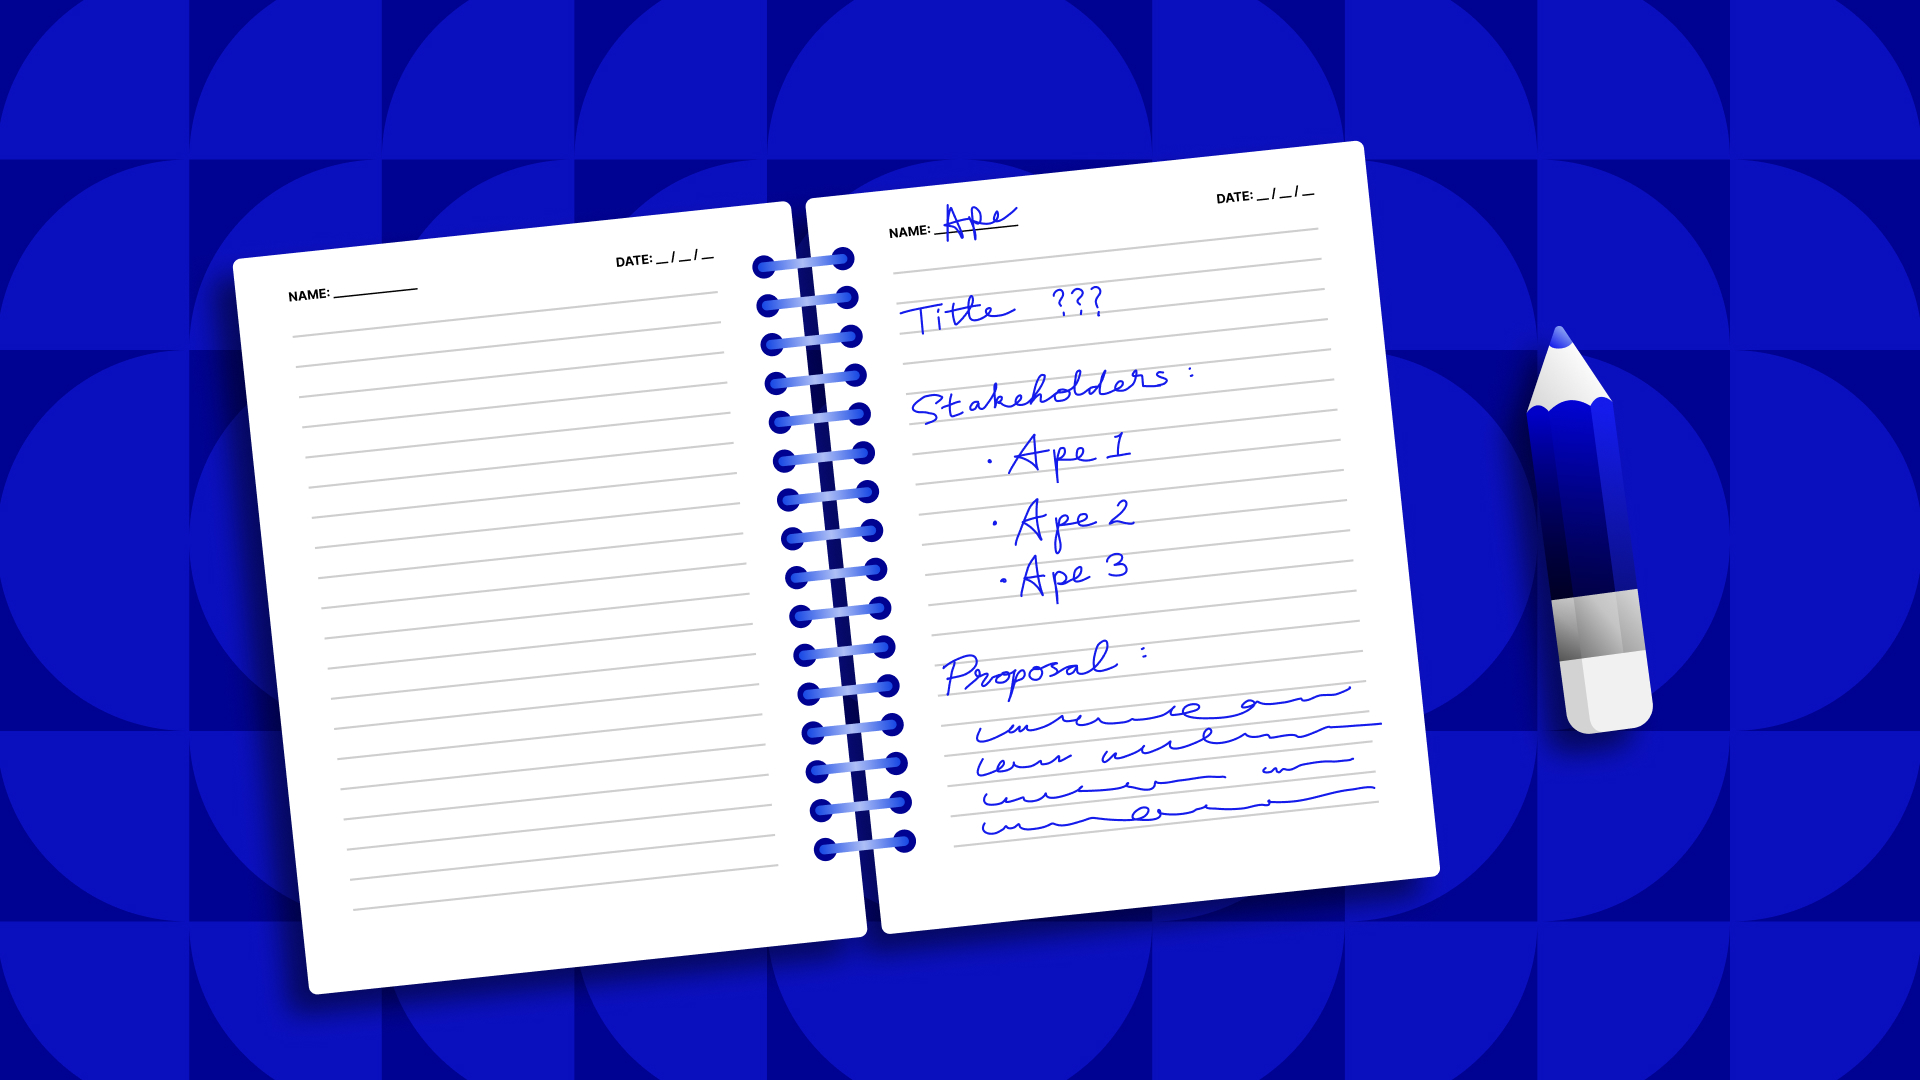 NAME: ________
DATE: __ / __ / __
NAME: Ape
DATE: __ / __ / __
Title ???
Stakeholders :
· Ape 1
· Ape 2
· Ape 3
Proposal :